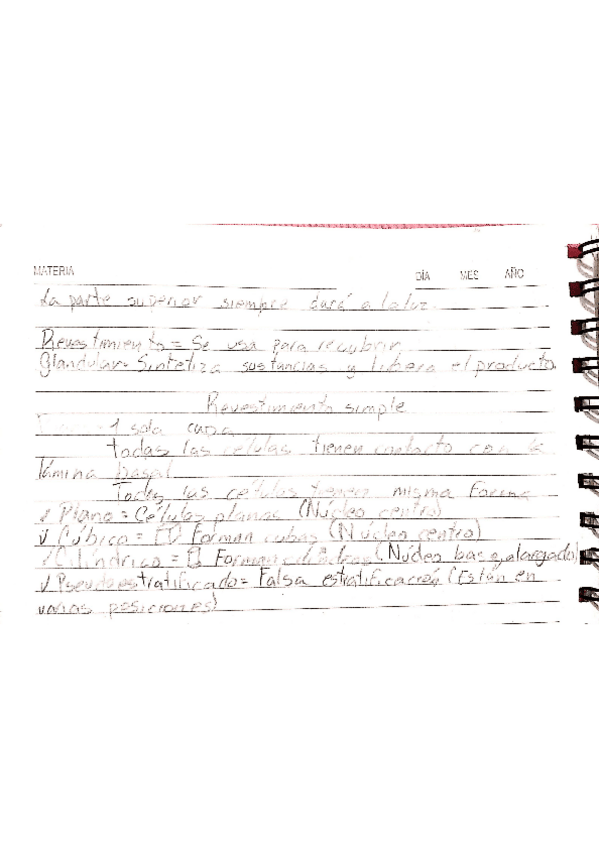 MATERIA DÍA MES AÑO
La parte superior siempre dará a la luz.
Revestimiento = Se usa para recubrir
Glandular = Sintetiza sustancias y libera el producto
Revestimiento simple
1 sola capa
Todas las células tienen contacto con la
lámina basal
Todas las células tienen misma forma
✓ Plano = Células planas (Núcleo centro)
✓ Cúbico = Forman cubos (Núcleo centro)
✓ Cilíndrico = Forman cilindros (Núcleo bas y alargado)
✓ Pseudoestratificado = Falsa estratificación (Están en
varias posiciones)